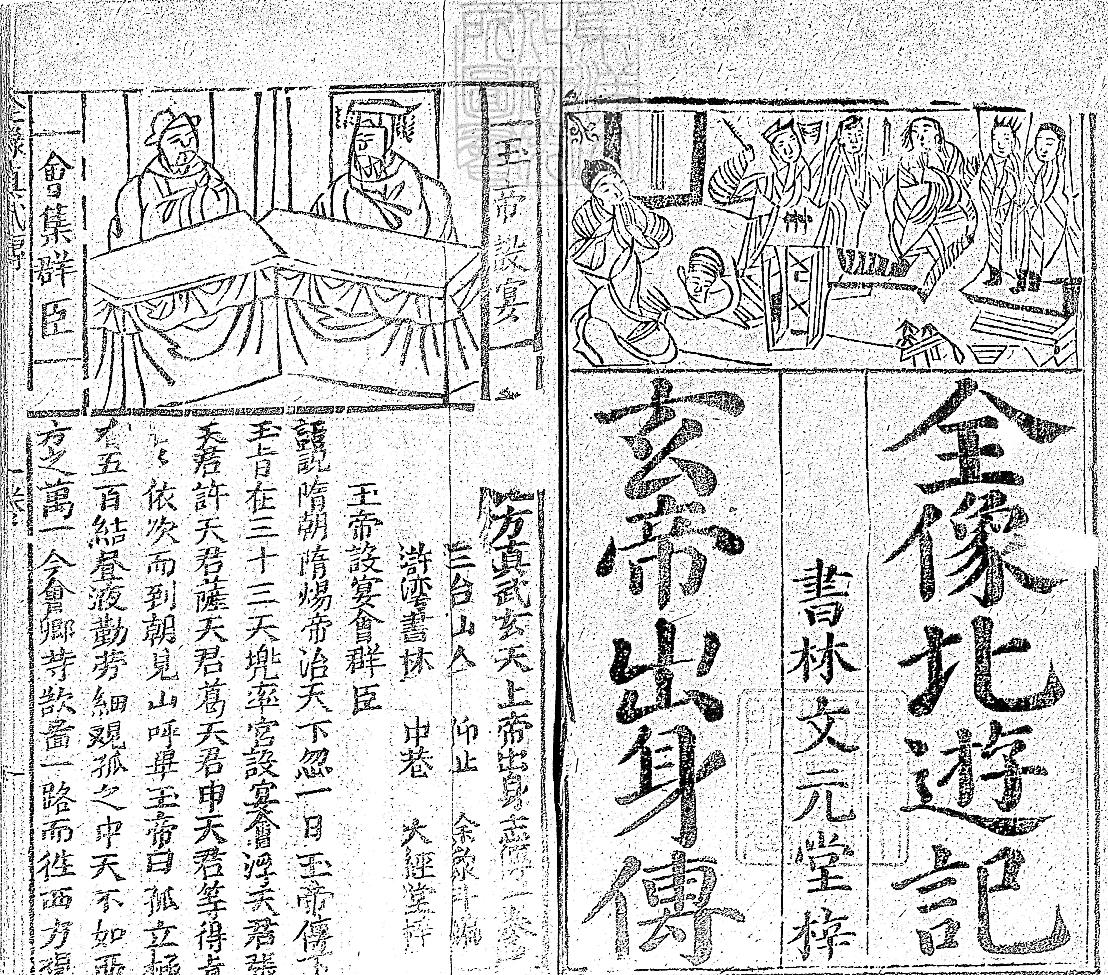 全像北遊記
書林文元堂梓
玄帝出身傳
玉帝設宴
會集群臣
方真武玄天上帝出身志傳一卷
三台山人 仰止 余象斗編
滸灣書林 中巷 大經堂梓
玉帝設宴會群臣
話說隋朝隋煬帝治天下忽一日玉帝傳下
玉旨在三十三天兠率宮設宴會浮天君張
天君許天君薩天君葛天君申天君等得旨
依次而到朝見山呼畢玉帝曰孤立極
五百結昼液勤劳細覌孤之中天不如西
方之萬一今會卿等欲啚一路而徃西方